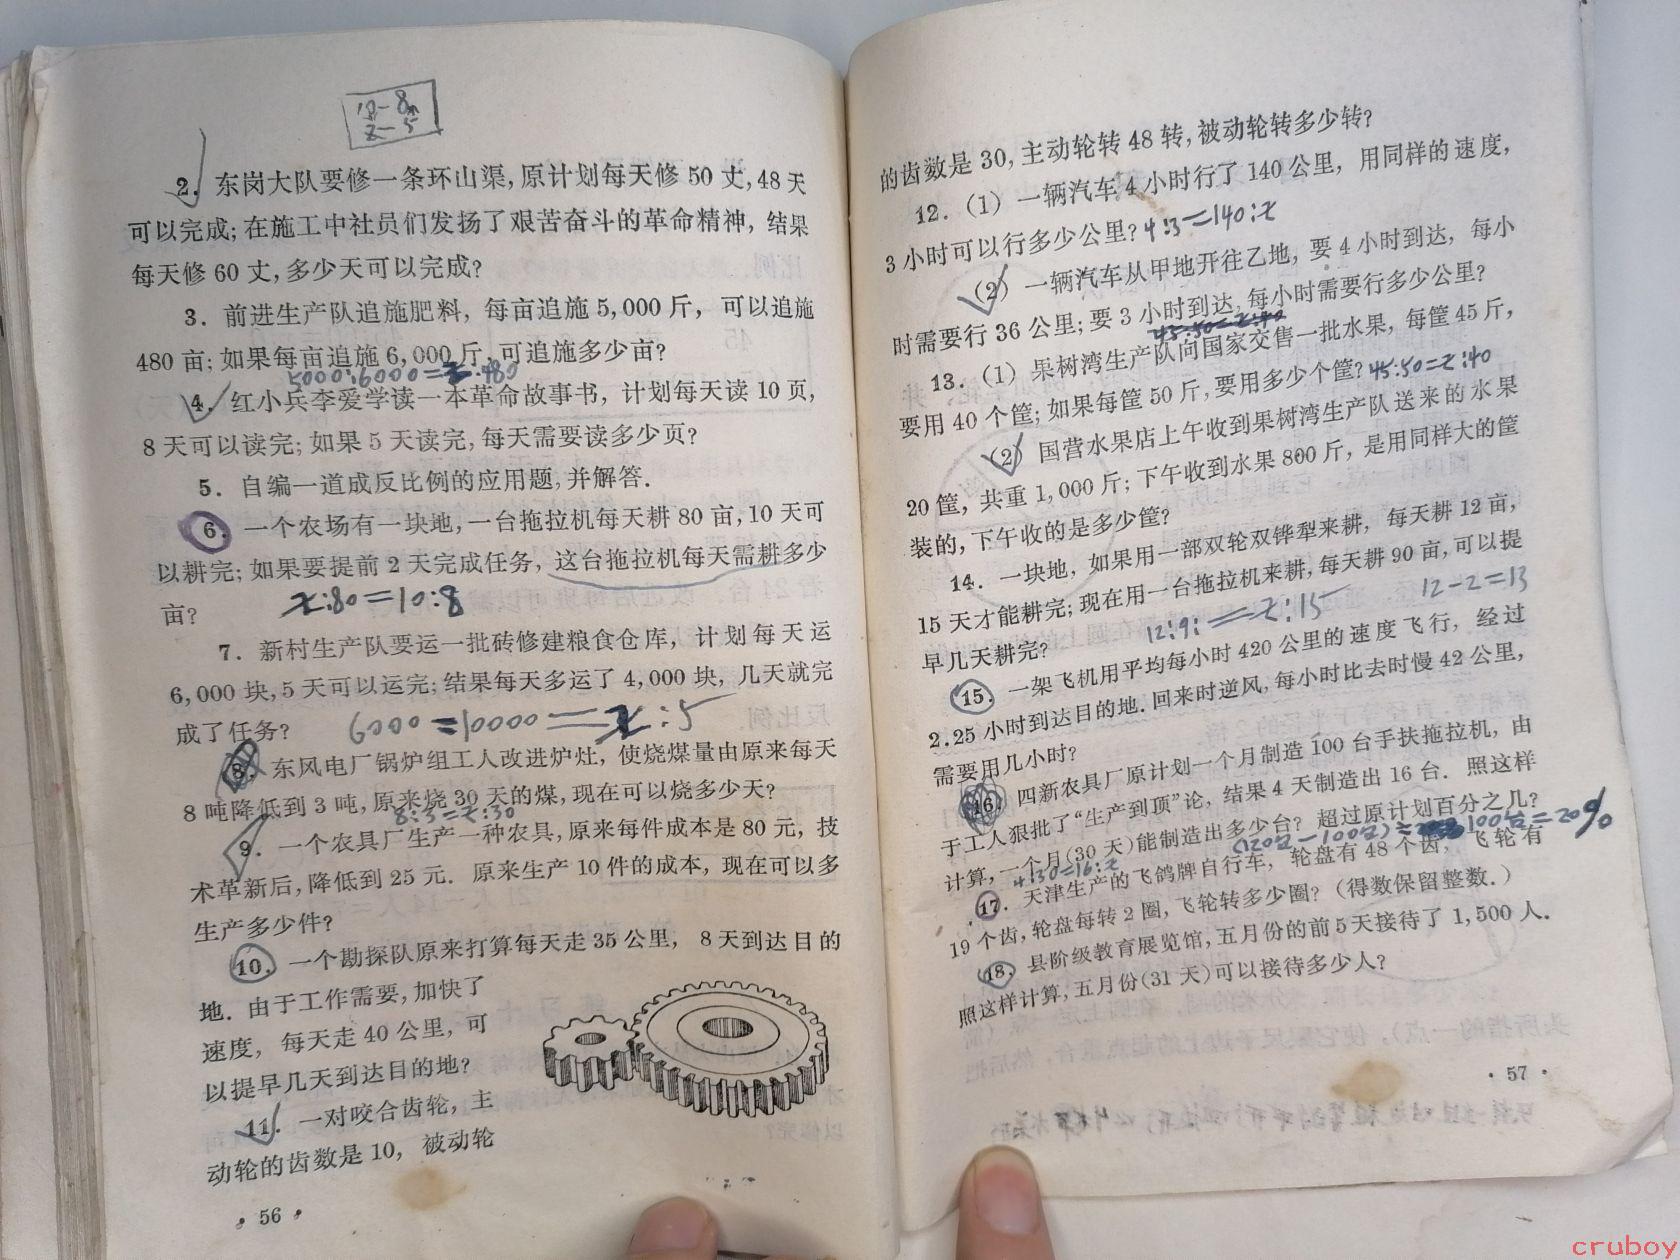 10-8
x-5
2. 东岗大队要修一条环山渠,原计划每天修50丈,48天
可以完成;在施工中社员们发扬了艰苦奋斗的革命精神,结果
每天修60丈,多少天可以完成?
3. 前进生产队追施肥料,每亩追施5,000斤,可以追施
480亩;如果每亩追施6,000斤,可追施多少亩?
5000:6000=x:480
4. 红小兵李爱学读一本革命故事书,计划每天读10页,
8天可以读完;如果5天读完,每天需要读多少页?
5. 自编一道成反比例的应用题,并解答.
6. 一个农场有一块地,一台拖拉机每天耕80亩,10天可
以耕完;如果要提前2天完成任务,这台拖拉机每天需耕多少
亩? x:80=10:8
7. 新村生产队要运一批砖修建粮食仓库,计划每天运
6,000块,5天可以运完;结果每天多运了4,000块,几天就完
成了任务? 6000=10000=x:5
8. 东风电厂锅炉组工人改进炉灶,使烧煤量由原来每天
8吨降低到3吨,原来烧30天的煤,现在可以烧多少天?
8:3=x:30
9. 一个农具厂生产一种农具,原来每件成本是80元,技
术革新后,降低到25元. 原来生产10件的成本,现在可以多
生产多少件?
10. 一个勘探队原来打算每天走35公里,8天到达目的
地. 由于工作需要,加快了
速度,每天走40公里,可
以提早几天到达目的地?
11. 一对咬合齿轮,主
动轮的齿数是10,被动轮
· 56 ·
的齿数是30,主动轮转48转,被动轮转多少转?
12. (1) 一辆汽车4小时行了140公里,用同样的速度,
3小时可以行多少公里? 4:3=140:x
(2) 一辆汽车从甲地开往乙地,要4小时到达,每小
时需要行36公里;要3小时到达,每小时需要行多少公里?
45:50=x:40
13. (1) 果树湾生产队向国家交售一批水果,每筐45斤,
要用40个筐;如果每筐50斤,要用多少个筐? 45:50=x:40
(2) 国营水果店上午收到果树湾生产队送来的水果
20筐,共重1,000斤;下午收到水果800斤,是用同样大的筐
装的,下午收的是多少筐?
14. 一块地,如果用一部双轮双铧犁来耕,每天耕12亩,
15天才能耕完;现在用一台拖拉机来耕,每天耕90亩,可以提
早几天耕完? 12:9:=x:15 12-2=13
15. 一架飞机用平均每小时420公里的速度飞行,经过
2.25小时到达目的地.回来时逆风,每小时比去时慢42公里,
需要用几小时?
16. 四新农具厂原计划一个月制造100台手扶拖拉机,由
于工人狠批了“生产到顶”论,结果4天制造出16台. 照这样
计算,一个月(30天)能制造出多少台? 超过原计划百分之几?
4:30=16:x (120台-100台) 100台=20%
17. 天津生产的飞鸽牌自行车,轮盘有48个齿,飞轮有
19个齿,轮盘每转2圈,飞轮转多少圈? (得数保留整数.)
18. 县阶级教育展览馆,五月份的前5天接待了1,500人.
照这样计算,五月份(31天)可以接待多少人?
· 57 ·
cruboy